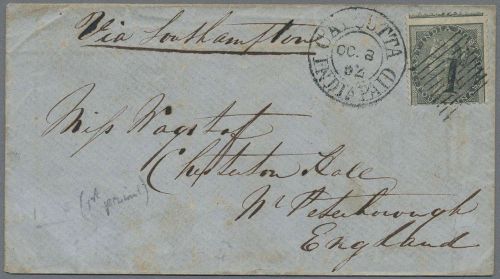 Via Southampton
CALCUTTA
OC. 8
62
INDIA PAID
INDIA
1
Miss Wagstaf
Chesterton Hall
Nr Peterborough
England